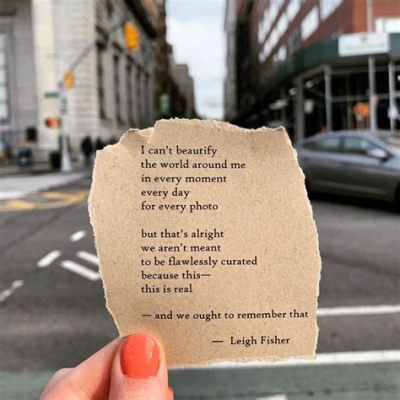 I can't beautify
the world around me
in every moment
every day
for every photo
but that's alright
we aren't meant
to be flawlessly curated
because this—
this is real
— and we ought to remember that
— Leigh Fisher